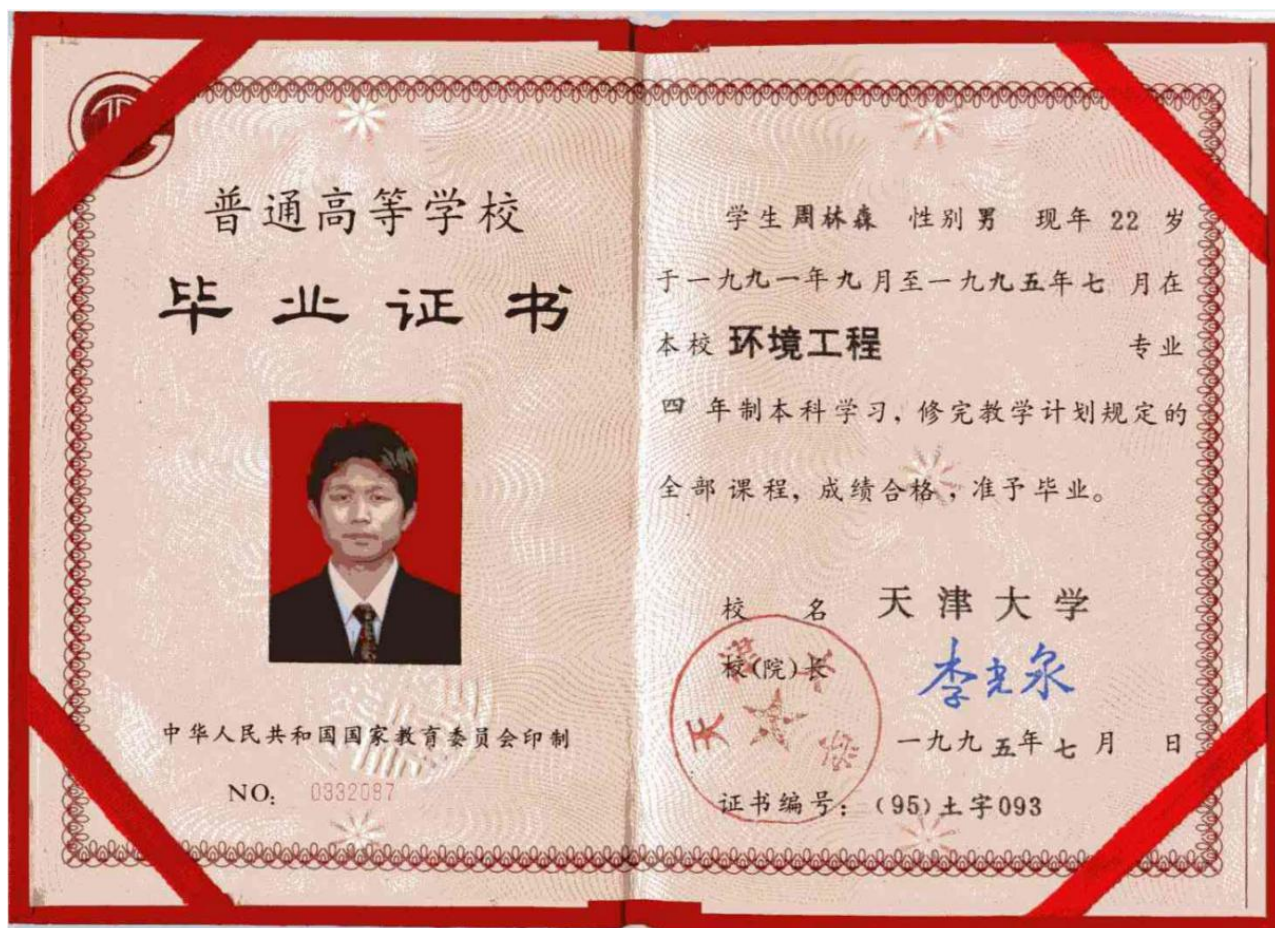 普通高等学校
毕业证书
中华人民共和国国家教育委员会印制
NO: 0332087
学生周林森 性别男 现年 22 岁
于一九九一年九月至一九九五年七 月在
本校 环境工程 专业
四 年制本科学习, 修完教学计划规定的
全部课程, 成绩合格, 准予毕业。
校 名 天津大学
校(院)长 李光泉
天津大学
一九九五年七月 日
证书编号: (95)土字093